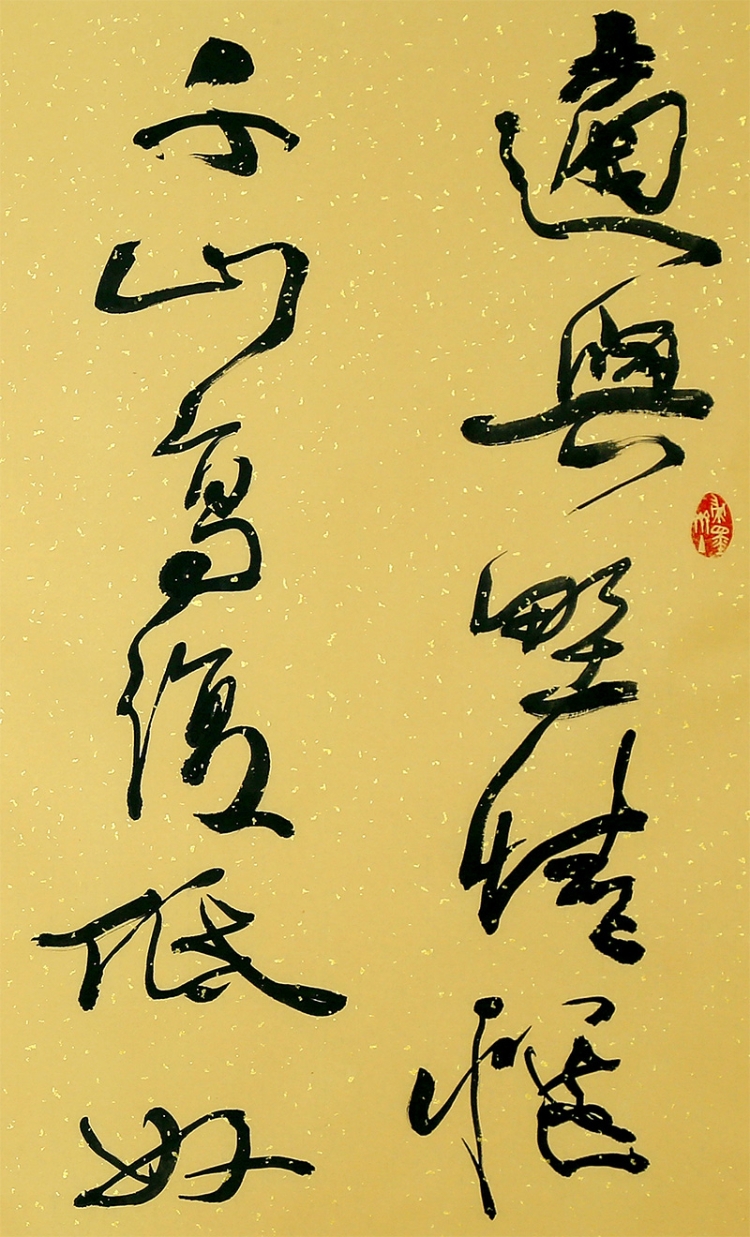 適與野情愜
千山高復低
好